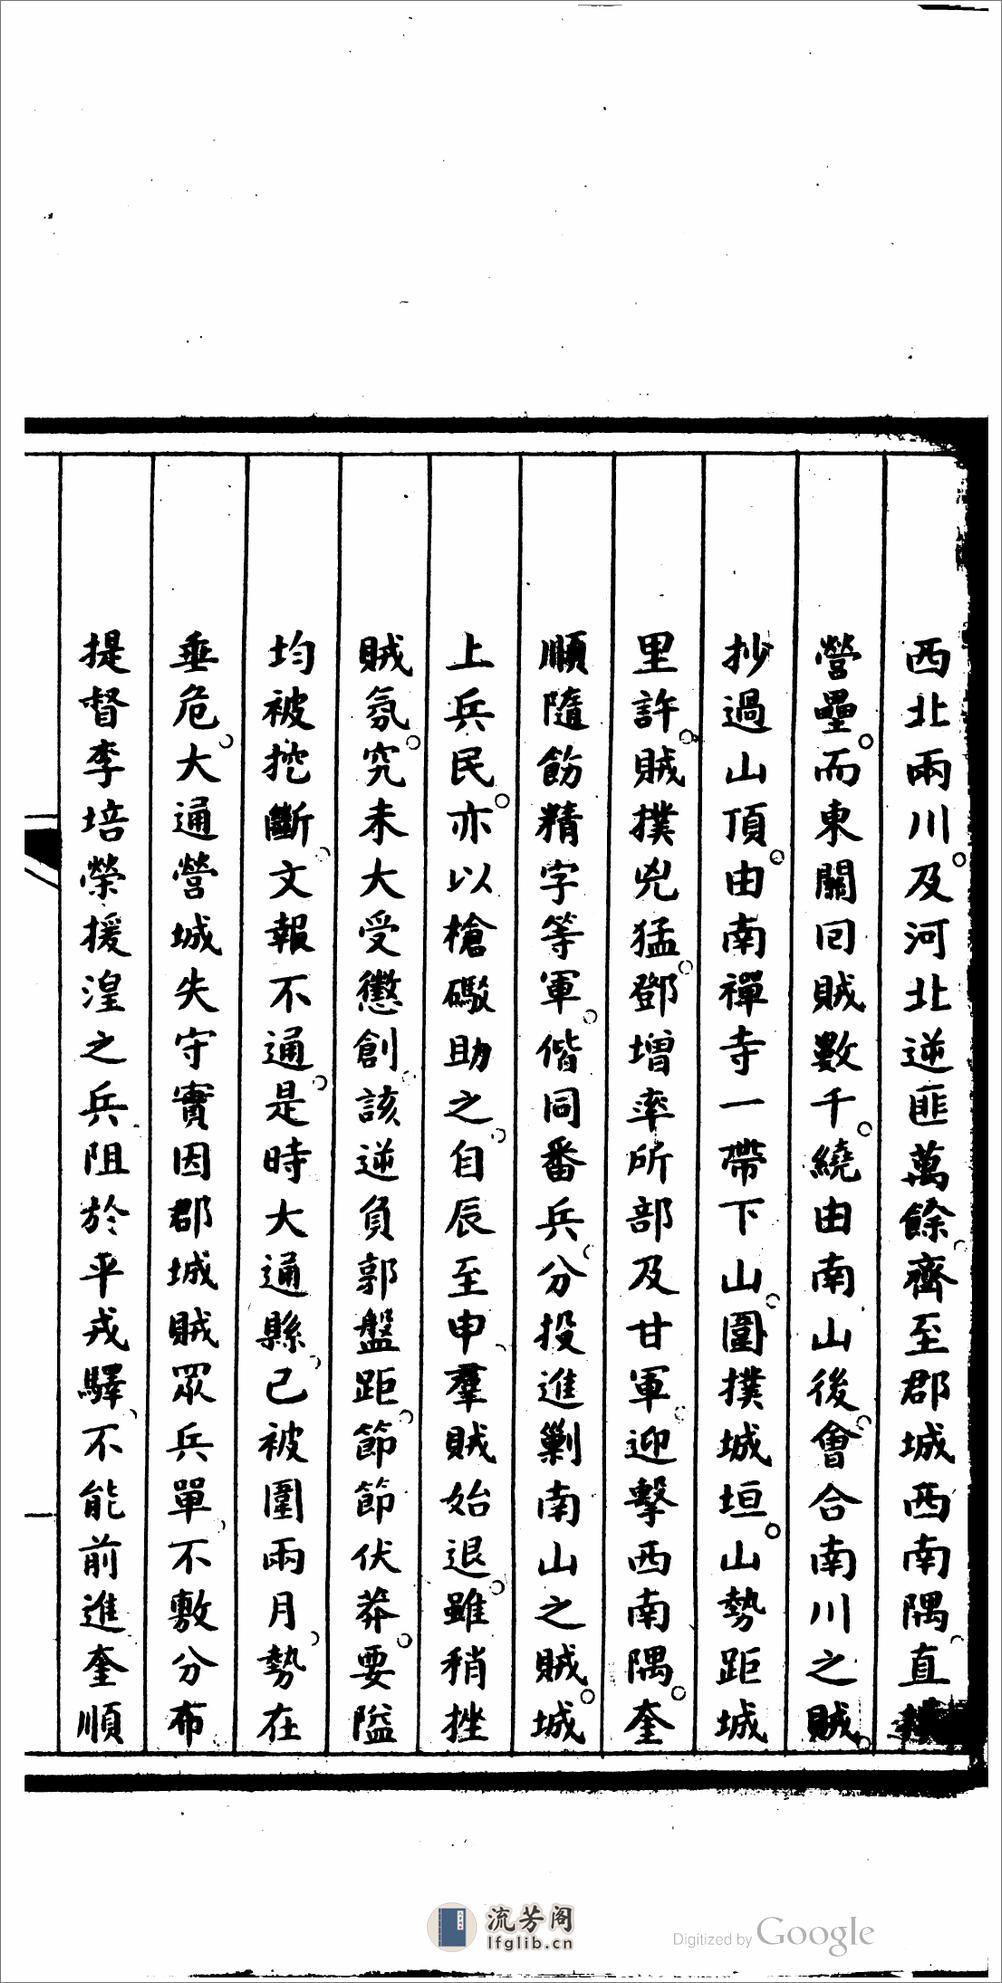 西北兩川。及河北逆匪萬餘。齊至郡城西南隅。直
營壘。而東關回賊數千。繞由南山後。會合南川之賊。
抄過山頂。由南禪寺一帶下山。圍撲城垣。山勢距城
里許。賊撲兇猛。鄧增率所部及甘軍。迎擊西南隅。奎
順隨飭精字等軍。偕同番兵。分投進剿南山之賊。城
上兵民。亦以槍礮助之。自辰至申。羣賊始退。雖稍挫
賊氛。究未大受懲創。該逆負郭盤距。節節伏莽。要隘
均被挖斷。文報不通。是時大通縣。已被圍兩月。勢在
垂危。大通營城失守實因郡城賊眾兵單。不敷分布
提督李培榮援湟之兵。阻於平戎驛。不能前進奎順
流芳阁
lfglib.cn
Digitized by Google